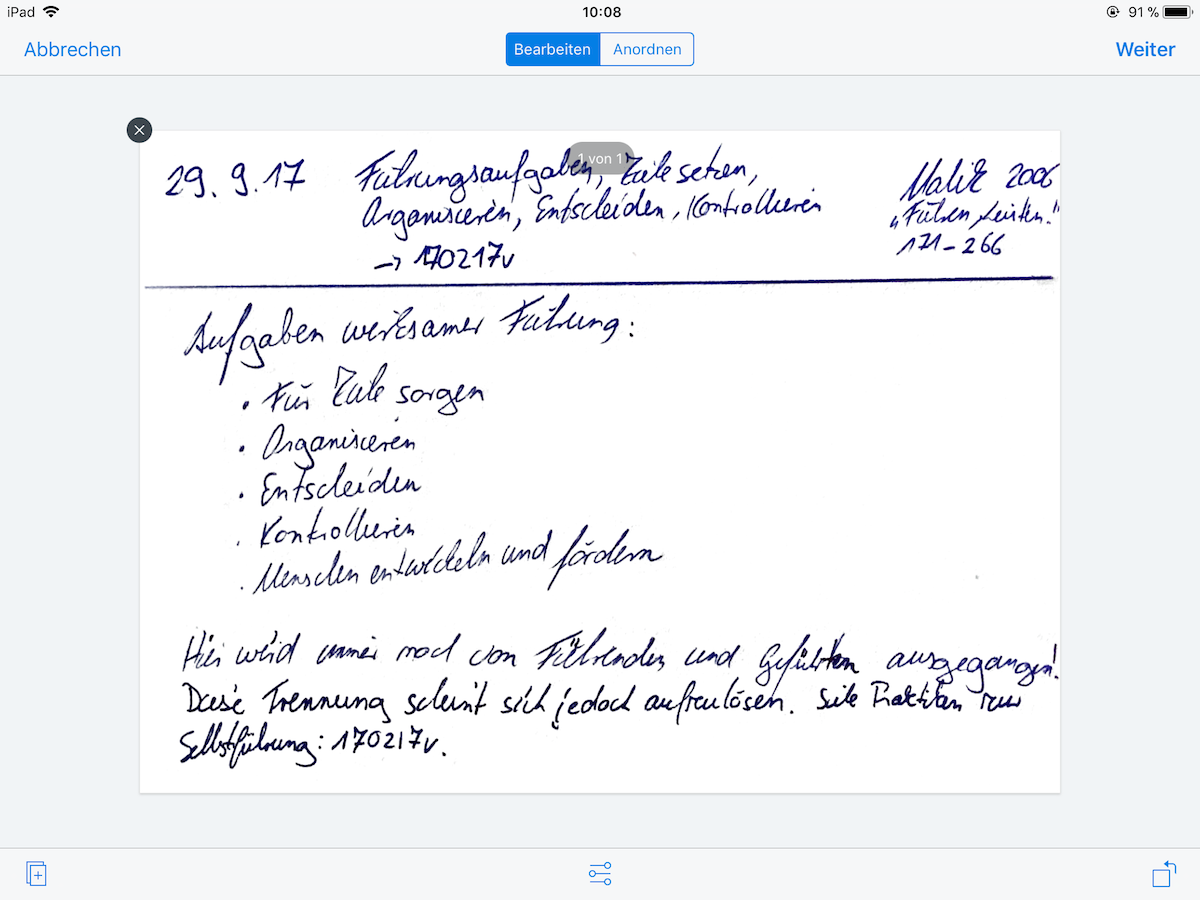 iPad 10:08 91 %
Abbrechen Bearbeiten Anordnen Weiter
1 von 1
29.9.17 Führungsaufgaben, Ziele setzen, Malik 2006
Organisieren, Entscheiden, Kontrollieren "Führen, Leisten."
→ 170217v 171-266
Aufgaben wirksamer Führung:
• Für Ziele sorgen
• Organisieren
• Entscheiden
• Kontrollieren
• Menschen entwickeln und fördern
Hier wird immer noch von Führenden und Geführten ausgegangen!
Diese Trennung scheint sich jedoch aufzulösen. Siehe Praktiken zur
Selbstführung: 170217v.